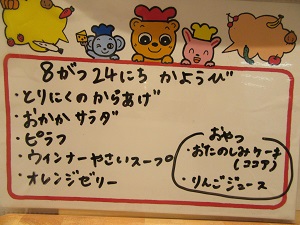 8がつ24にち かようび
・とりにくのからあげ
・おかか サラダ
・ピラフ
・ウィンナーやさいスープ
・オレンジゼリー
おやつ
・おたのしみケーキ
(ココア)
・りんごジュース